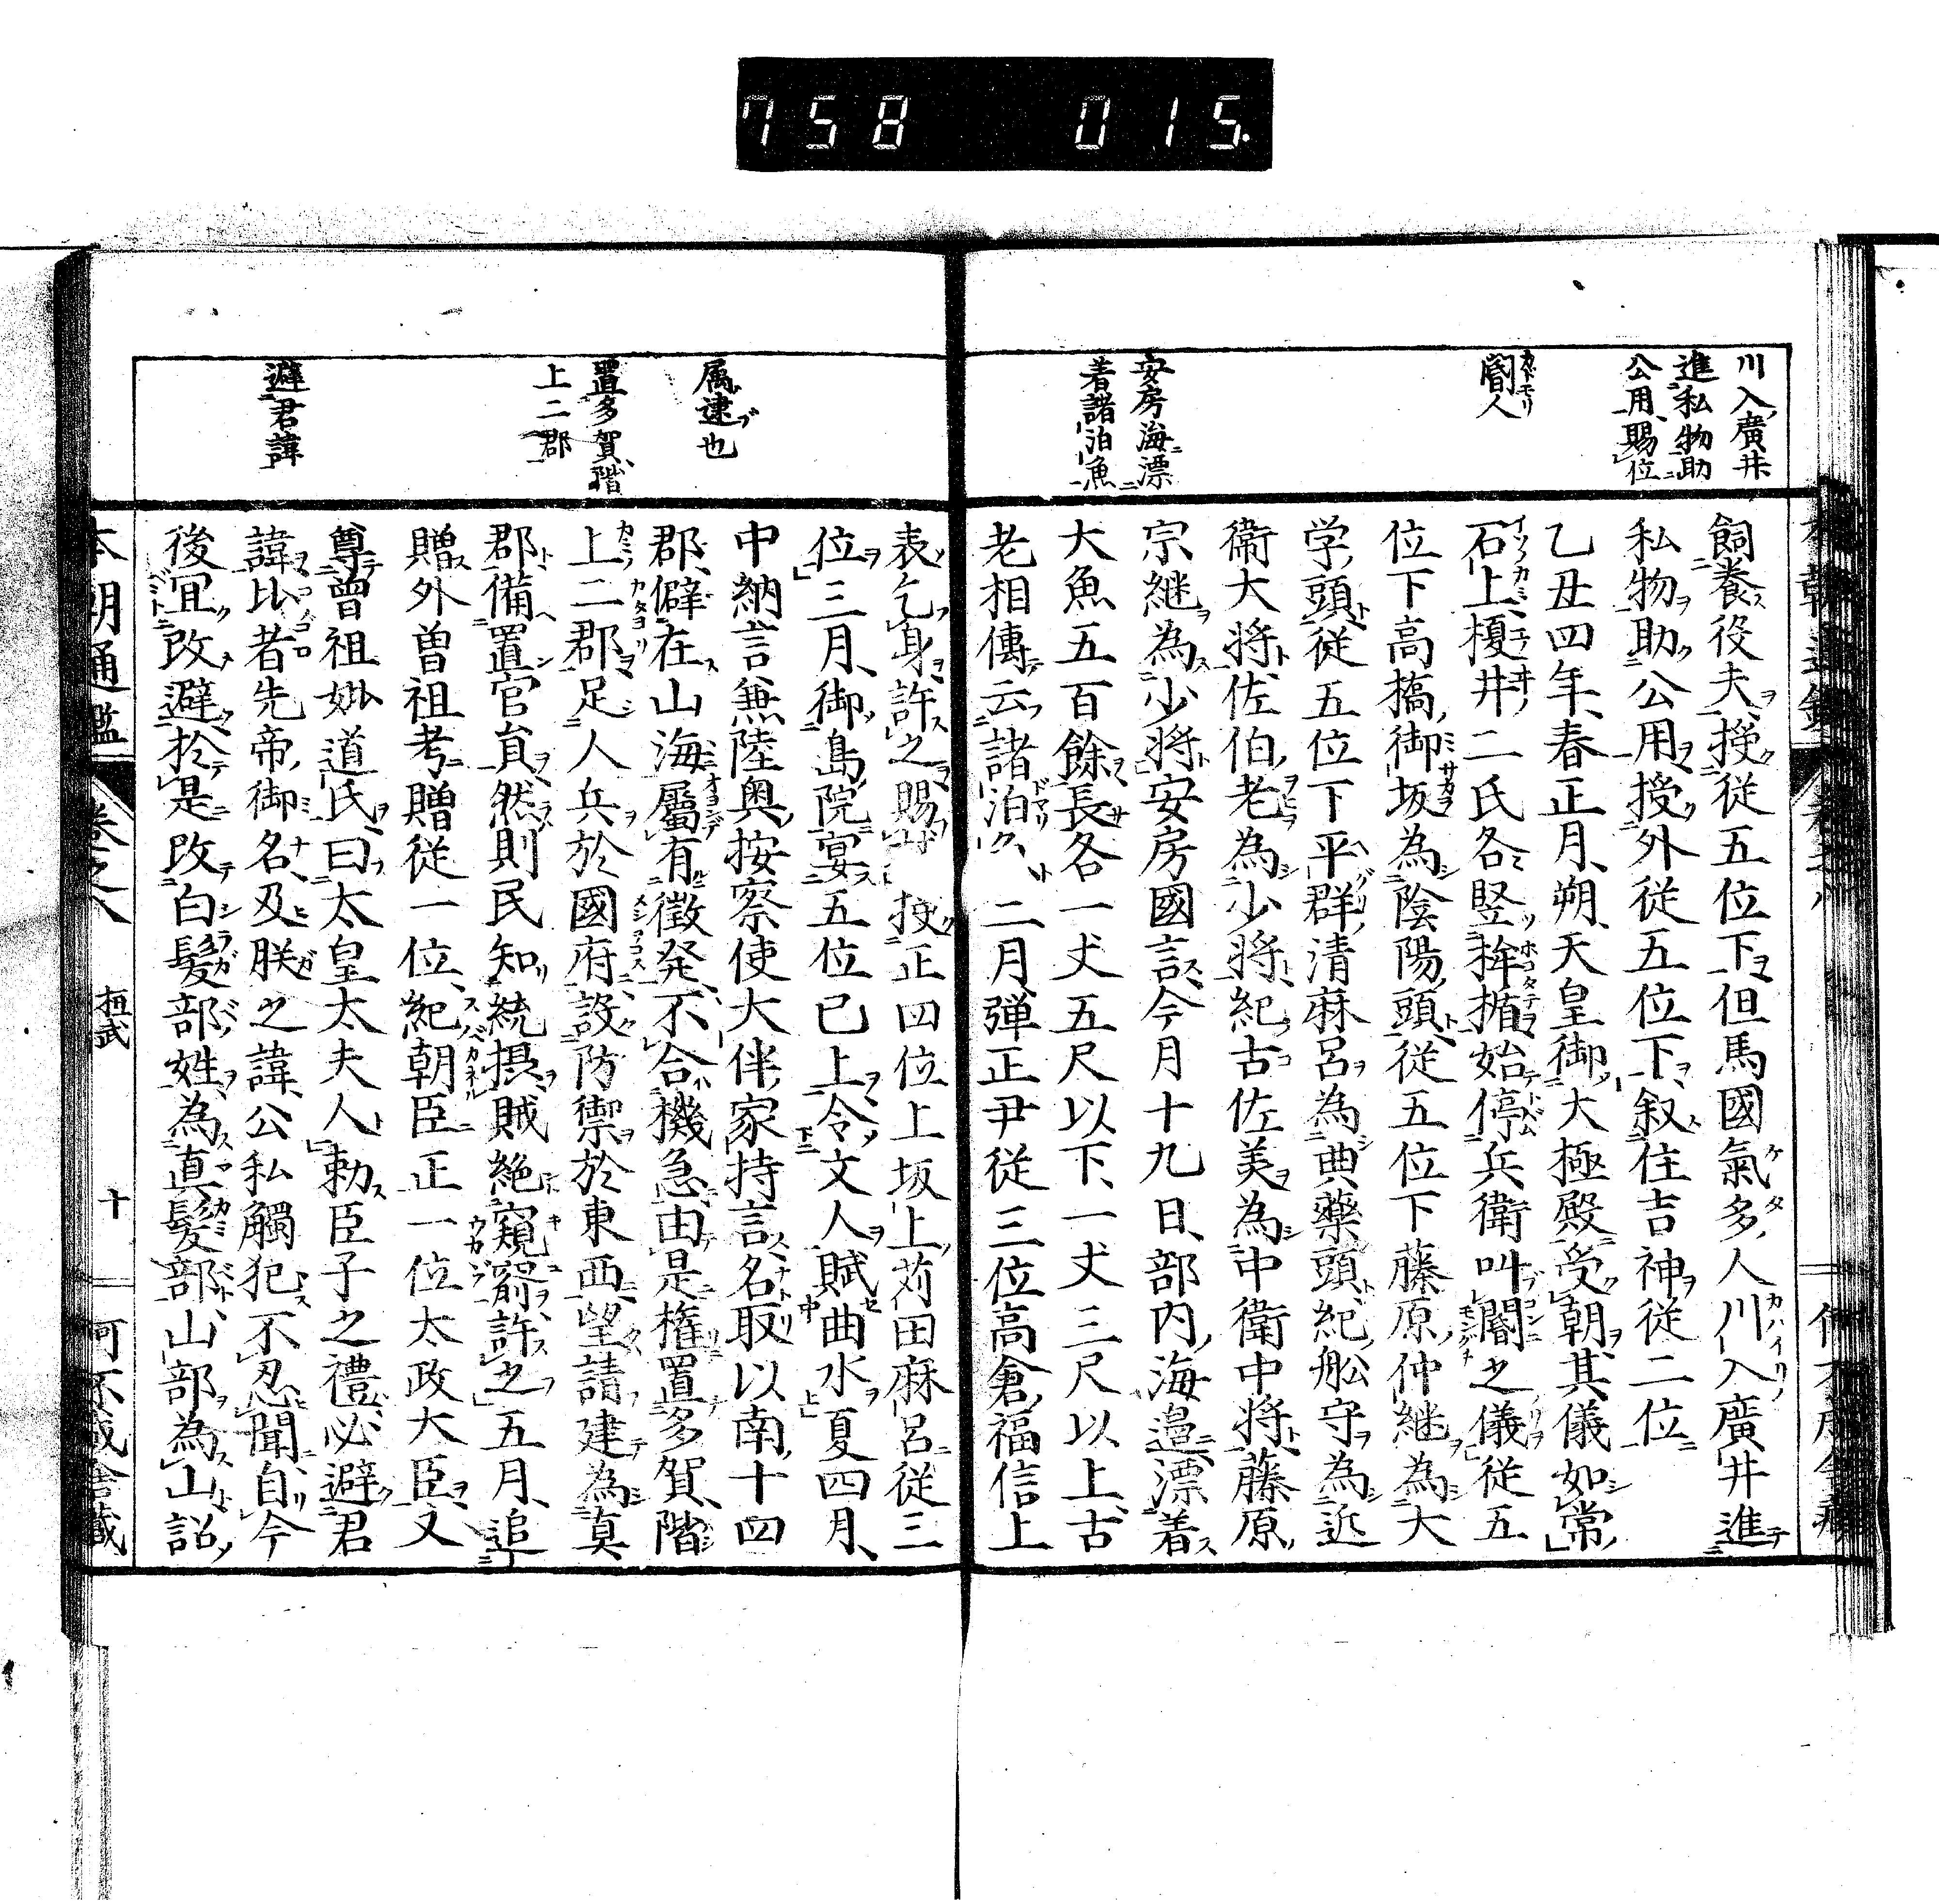 758 015
川入廣井
進私物助
公用賜位
閽人
安房海漂
着諸泊魚
飼養役夫授従五位下但馬國氣多人川入廣井進
私物助公用授外従五位下叙住吉神従二位
乙丑四年春正月朔天皇御大極殿受朝其儀如常
石上榎井二氏各竪桙楯始停兵衛叫閽之儀従五
位下高橋御坂為陰陽頭従五位下藤原仲継為大
学頭従五位下平群清麻呂為典藥頭紀舩守為近
衛大将佐伯老為少将紀古佐美為中衛中将藤原
宗継為少将安房國言今月十九日部内海邉漂着
大魚五百餘長各一丈五尺以下一丈三尺以上古
老相傳云諸泊魚二月弾正尹従三位高倉福信上
属逮也
置多賀階
上二郡
避君諱
表乞身許之賜 授正四位上坂上苅田麻呂従三
位三月御島院宴五位已上令文人賦曲水夏四月
中納言兼陸奥按察使大伴家持言名取以南十四
郡僻在山海屬有徴発不合機急由是権置多賀階
上二郡足人兵於國府設防禦於東西望請建為真
郡備置官負然則民知統摂賊絶窺窬許之五月追
贈外曽祖考贈従一位紀朝臣正一位太政大臣又
尊曽祖妣道氏曰太皇太夫人勅臣子之禮必避君
諱比者先帝御名及朕之諱公私觸犯不忍聞自今
後冝改避於是改白髪部姓為真髪部山部為山詔
本朝通鑑 卷之八 桓武 十